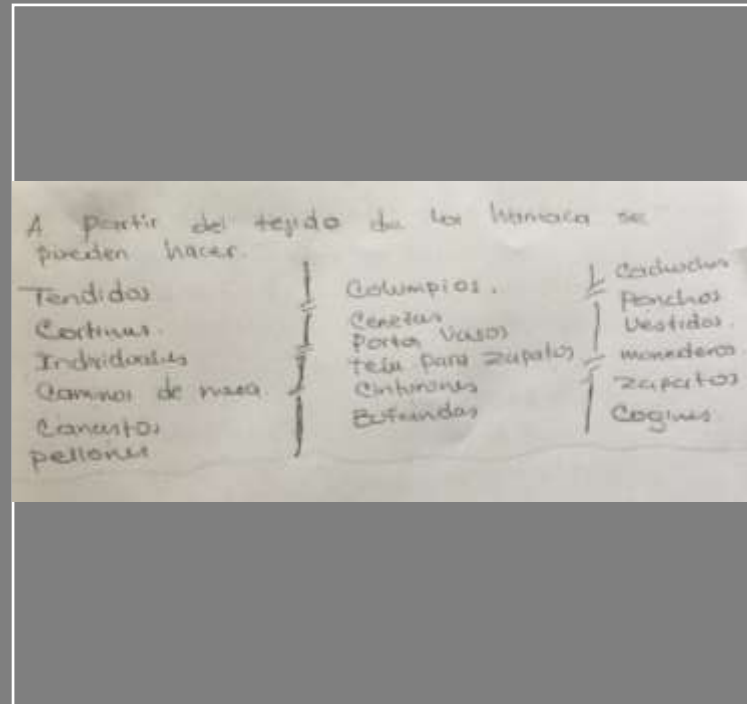 A partir del tejido de la hamaca se
pueden hacer.
Tendidos
Cortinas.
Individuales
Caminos de mesa.
Canastos
pellones
Columpios.
Cenefas
Porta Vasos
tela para zapatos
Cinturones
Bufandas
Ponchos
Vestidos.
monederos
zapatos
Cogines